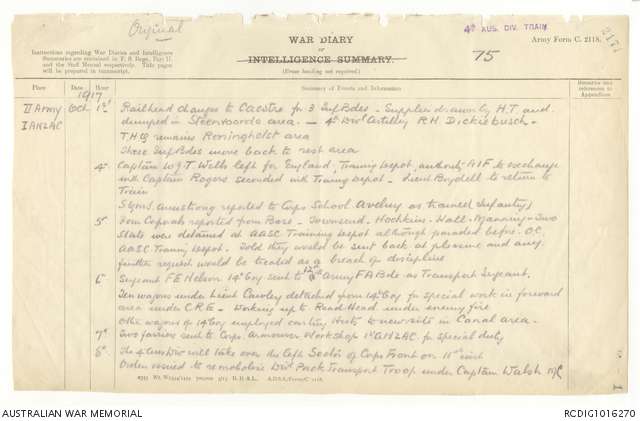 Original
WAR DIARY
or
INTELLIGENCE SUMMARY.
(Erase heading not required.)
4TH AUS. DIV. TRAIN
75
Army Form C. 2118.
Instructions regarding War Diaries and Intelligence
Summaries are contained in F. S. Regs., Part II.
and the Staff Manual respectively. Title pages
will be prepared in manuscript.
Place
Date
Hour
Summary of Events and Information
Remarks and
references to
Appendices
1917
II Army Oct 1st Railhead changes to Caestre for 3 Inf Bdes - Supplies drawn by H.T and
I ANZAC dumped in Steenvoorde area. - 4th Div Artillery R.H. Dickiebusch -
T.HQ remains Reninghelst area
Three Inf Bdes move back to rest area
4th Captain W.G.T Wells left for England, Training Depot, authority AIF to exchange
with Captain Rogers seconded with Training Depot. - Lieut Boydell to return to
Train
Armstrong reported to Corps School Aveluy as trained Infantry
5th Four Corporals reported from Base - Townsend, Hockins, Hall, Manning - Two
state was detained at AASC Training Depot although paraded before O.C.
AASC Training Depot. Told they would be sent back at pleasure and any
further request would be treated as a breach of discipline
6th Sergeant F E Nelson 14th Coy sent to 12th Army F A Bde as Transport Sergeant.
Ten wagons under Lieut Cawley detached from 14th Coy for special work in forward
area under C.R.E - Working up to Road Head under enemy fire
Other wagons of 14th Coy employed carting Huts to new site in Canal area.
7th Two farriers sent to Corps Armourer Workshop 1st ANZAC for special duty
8th The 4 Aus Div will take over the left Sector of Corps Front on 11th inst
Orders issued to remobilize Div Pack Transport Troop under Captain Walsh
AUSTRALIAN WAR MEMORIAL
RCDIG1016270